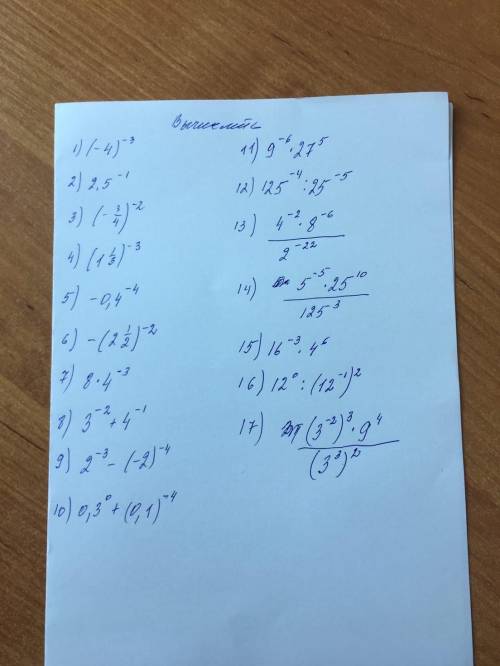 Вычислите
1) (-4)⁻³
2) 2,5⁻¹
3) (-3/4)⁻²
4) (1 1/3)⁻³
5) -0,4⁻⁴
6) -(2 1/2)⁻²
7) 8·4⁻³
8) 3⁻² + 4⁻¹
9) 2⁻³ - (-2)⁻⁴
10) 0,3⁰ + (0,1)⁻⁴
11) 9⁻⁶·27⁵
12) 125⁻⁴ : 25⁻⁵
13) 4⁻²·8⁻⁶ / 2⁻²²
14) 5⁻⁵·25¹⁰ / 125⁻³
15) 16⁻³·4⁶
16) 12⁰ : (12⁻¹)²
17) (3⁻²)³·9⁴ / (3³)²